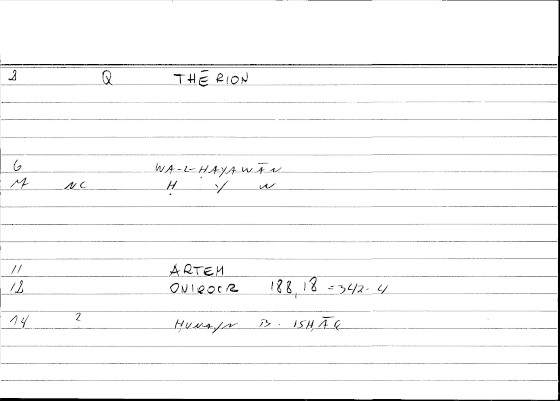 8 Q THĒRION
6 WA-L-ḤAYAWĀN
M NC Ḥ Y W
11 ARTEM
18 ONIROCR 188,18 =342-4
14 2 ḤUNAYN B. ISḤĀQ